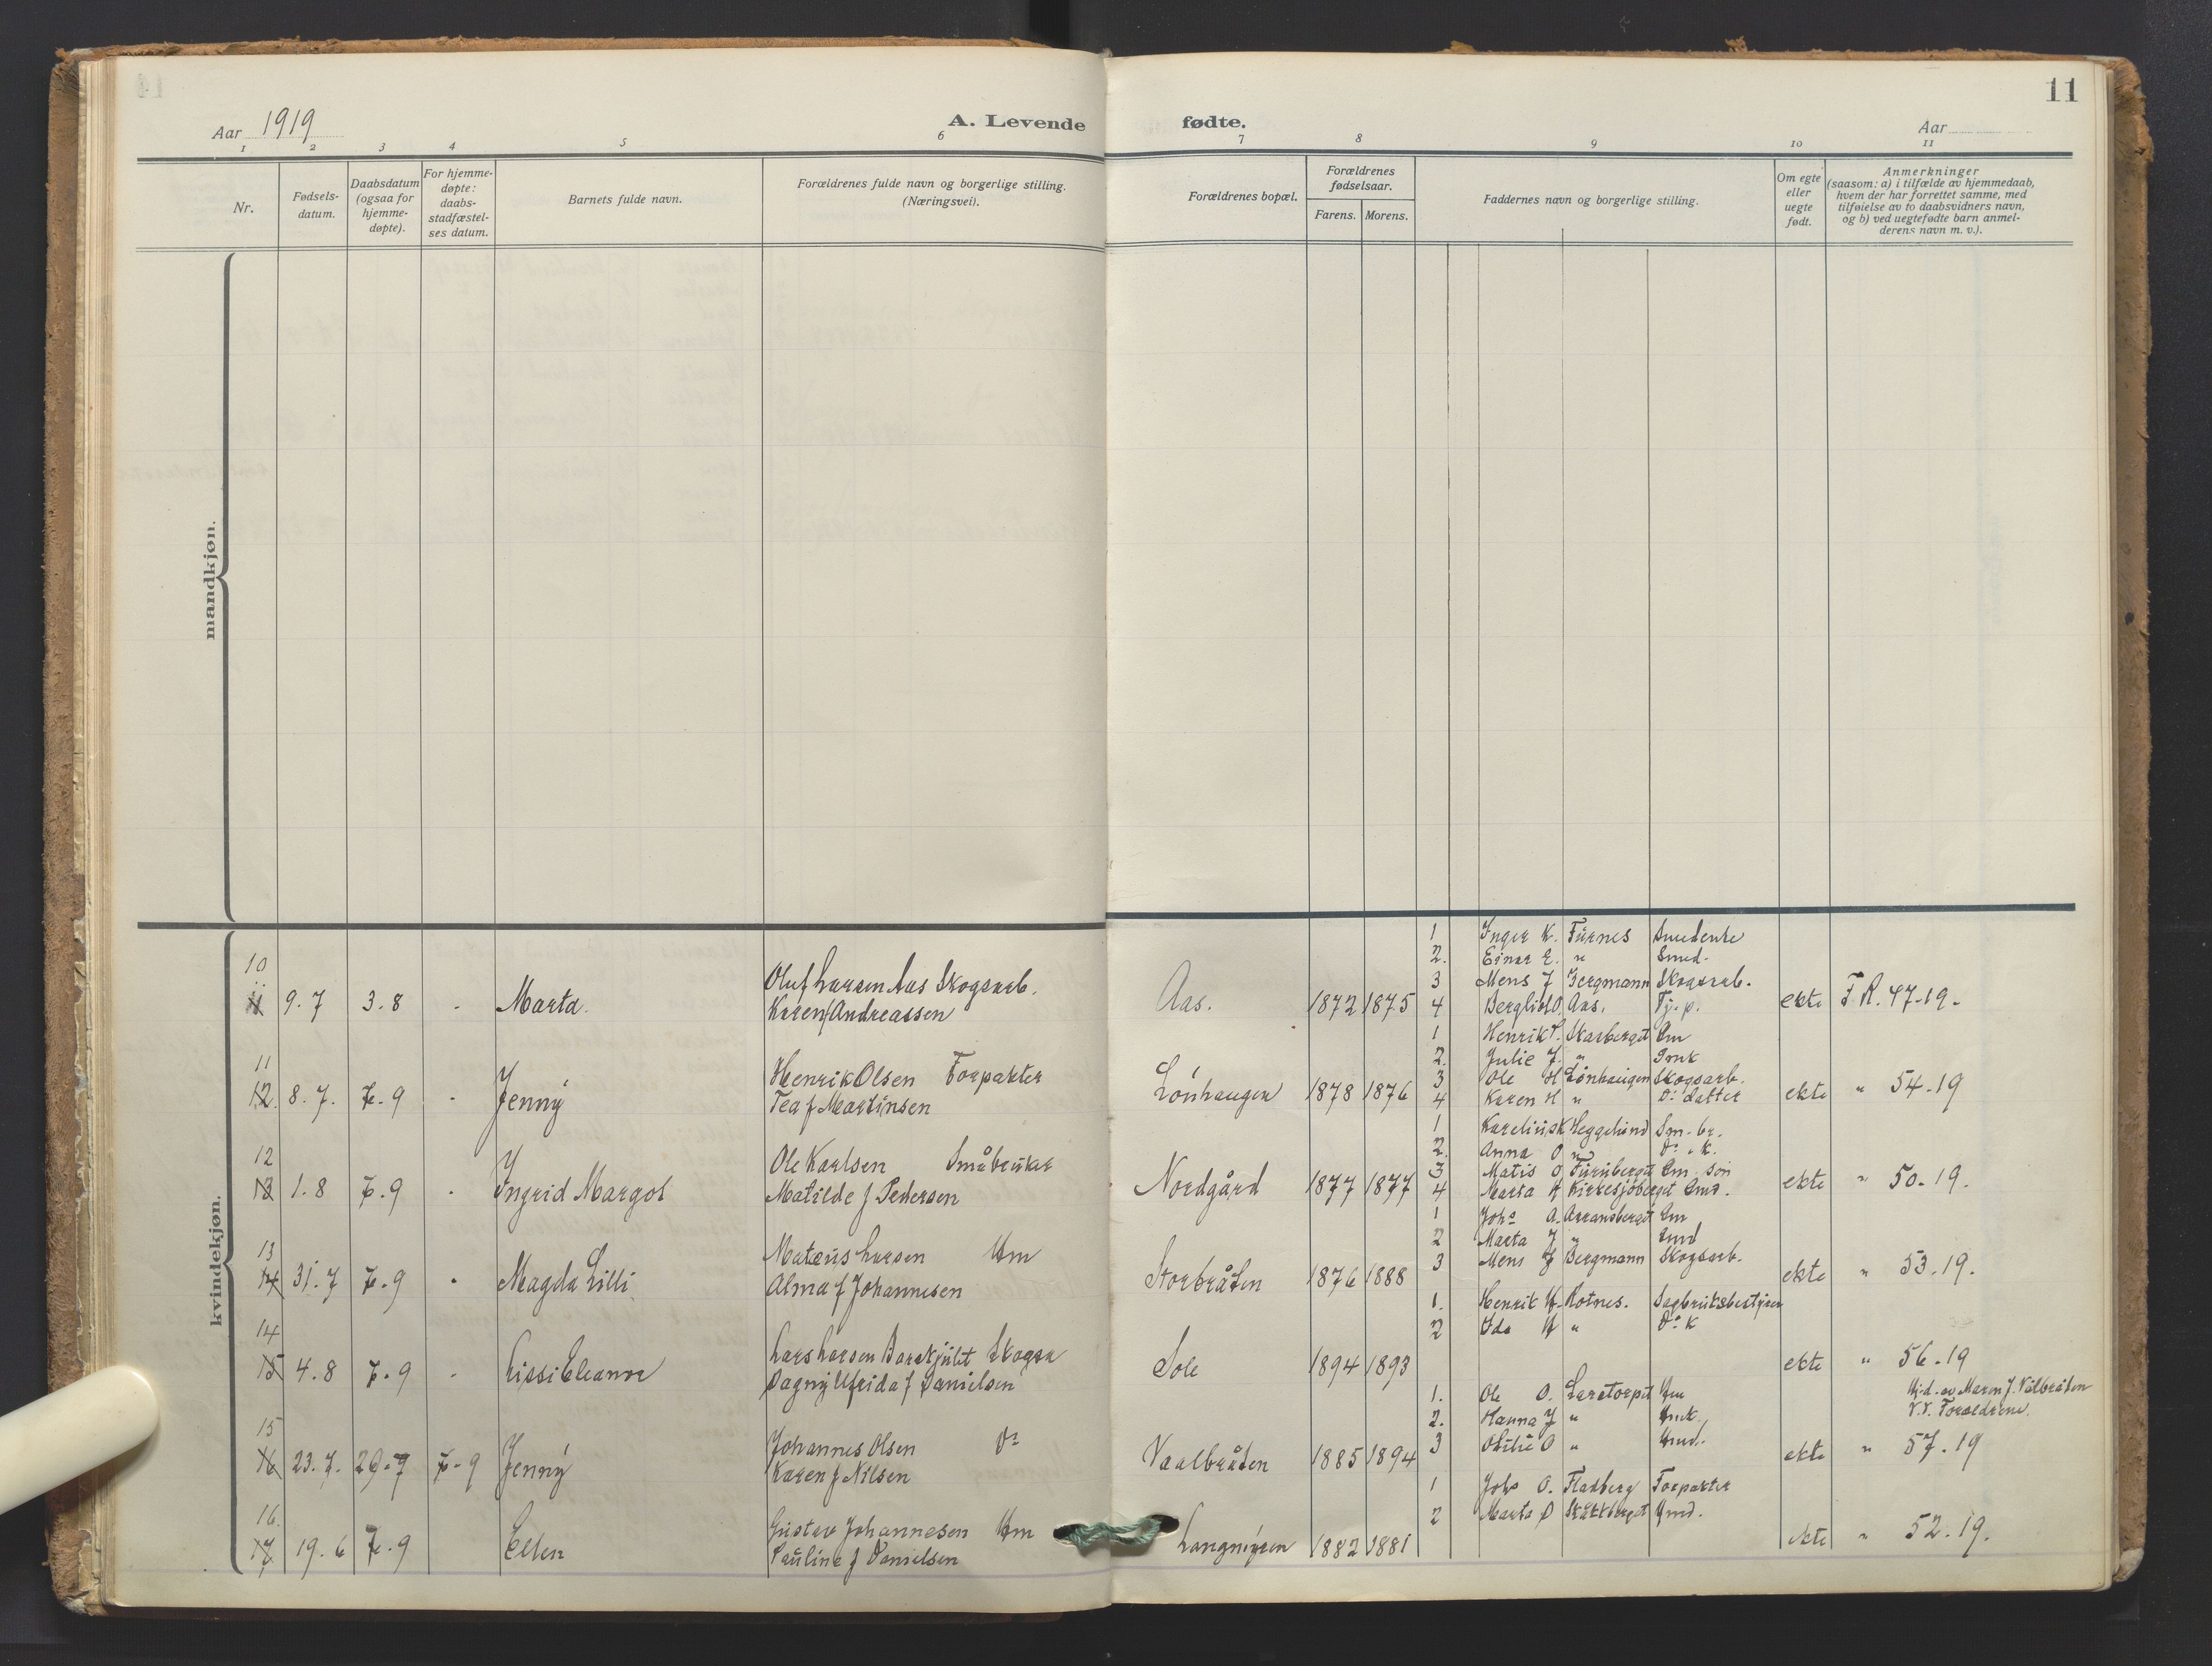 11
Aar 1919
A. Levende fødte.
Aar
1 2 3 4 5 6 7 8 9 10 11
Nr.
Fødsels-
datum.
Daabsdatum
(ogsaa for
hjemme-
døpte).
For hjemme-
døpte:
daabs-
stadfæstel-
ses datum.
Barnets fulde navn.
Forældrenes fulde navn og borgerlige stilling.
(Næringsvei).
Forældrenes bopæl.
Forældrenes
fødselsaar.
Farens. Morens.
Faddernes navn og borgerlige stilling.
Om egte
eller
uegte
født.
Anmerkninger
(saasom: a) i tilfælde av hjemmedaab,
hvem der har forrettet samme, med
tilføielse av to daabsvidners navn,
og b) ved uegtefødte barn anmel-
derens navn m. v.).
mandkjøn.
kvindekjøn.
10
11 9.7 3.8 - Marta.
Oluf Larsen Aas Skogsarb.
Karen f Andreassen
Aas. 1872 1875
1 Inger K. Furnes
2. Einar E. " Smed.
3 Mens J Bergmann Skogsarb.
4 Bergliot O. Aas. Tj. p.
ekte F.R. 47-19.
11
12. 8.7. 7.9 - Jenny
Henrik Olsen Forpakter
Tea f Martinsen
Lönhaugen 1878 1876
1 Henrik Skasberget Gm
2. Julie J. " Gmk
3 Ole H Lönhaugen Skogsarb.
4 Karen H " Do datter
ekte " 54-19
12
13 1.8 7.9 - Ingrid Margot
Ole Karlsen Småbruker
Matilde f Pedersen
Nordgård 1877 1877
1 Karelius K Heggelund Sm.br.
2. Anna O " Do K.
3 Matis O Furuberget Gm. sön
4 Marta Kirkesjöberget Gmd.
ekte " 50-19.
13
14 31.7 7.9 - Magda Lilli
Mateus Larsen Gm
Alma f Johannesen
Storbråten 1876 1888
1 Johs A. Arransberget Gm
2 Marta J " Gmd
3 Mens J Bergmann Skogsarb.
ekte " 53.19.
14
15 4.8 7.9 - Lissi Eleanor
Lars Larsen
Dagny f Danielsen
Sole 1894 1893
1. Henrik H. Rotnes. Sagbruksbestyrer
2 Ida H " Do K
ekte " 56-19
15
16 23.7. 29.7 7.9 Jenny
Johannes Olsen Do
Karen f Nilsen
Vaalbråten 1885 1894
1. Ole O. Larstorpet Gm
2. Hanna J " Gmk.
3 Otilie O " Gmd.
Hj.d. av Maren J. Vålbråten
V.V. Forældrene.
ekte " 57-19
16.
17 19.6 7.9 Ellen
Gustav Johannesen Gm
Pauline f Danielsen
Langmyren 1882 1881
1 Johs O. Fladberg Forpakter
2 Marta Gmd.
ekte " 52.19.